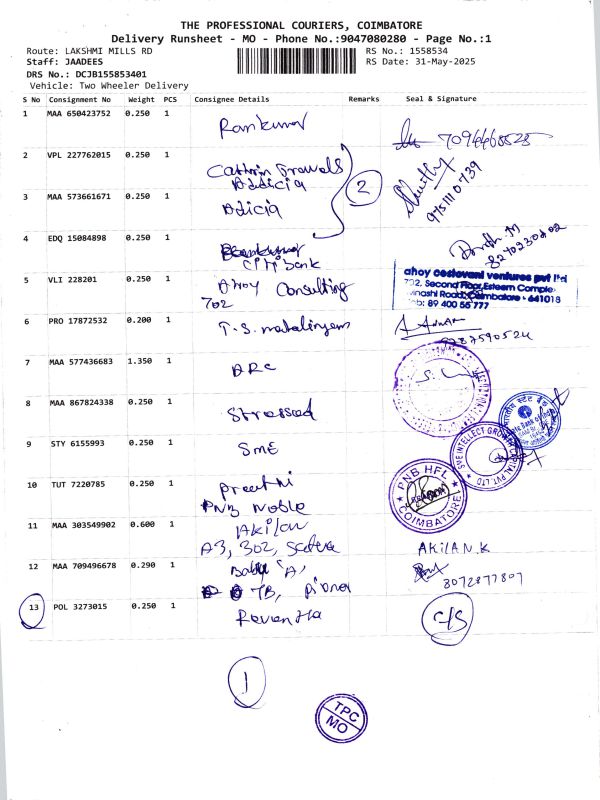 THE PROFESSIONAL COURIERS, COIMBATORE
Delivery Runsheet - MO - Phone No.:9047080280 - Page No.:1
Route: LAKSHMI MILLS RD
RS No.: 1558534
Staff: JAADEES
RS Date: 31-May-2025
DRS No.: DCJB155853401
Vehicle: Two Wheeler Delivery
S No Consignment No Weight PCS Consignee Details Remarks Seal & Signature
1 MAA 650423752 0.250 1 Ramkumar
2 VPL 227762015 0.250 1 Cathrin Travels
Addicia
2
3 MAA 573661671 0.250 1 Adicia
9751110739
4 EDQ 15084898 0.250 1
Citi bank
8270230202
5 VLI 228201 0.250 1 Ahoy Consulting
702
ahoy costovani ventures pvt ltd
702, Second Floor, Esteem Comple
vinashi Road, Coimbatore - 641018
ob: 89 400 55 777
6 PRO 17872532 0.200 1 T.S.
8787590524
7 MAA 577436683 1.350 1 ARC
8 MAA 867824338 0.250 1 Stressed
9 STY 6155993 0.250 1 SME
SVE INTELLECT GROWTH CAPITAL PVT. LTD
भारतीय स्टेट बैंक
10 TUT 7220785 0.250 1 Preethi
PNB Noble
PNB HFL
COIMBATORE
11 MAA 303549902 0.600 1 Akilan
A3, 302,
AKILAN.K
12 MAA 709496678 0.290 1 Baby 'A,
7B,
8072877807
13 POL 3273015 0.250 1 Revantha
C/S
1
TPC
MO